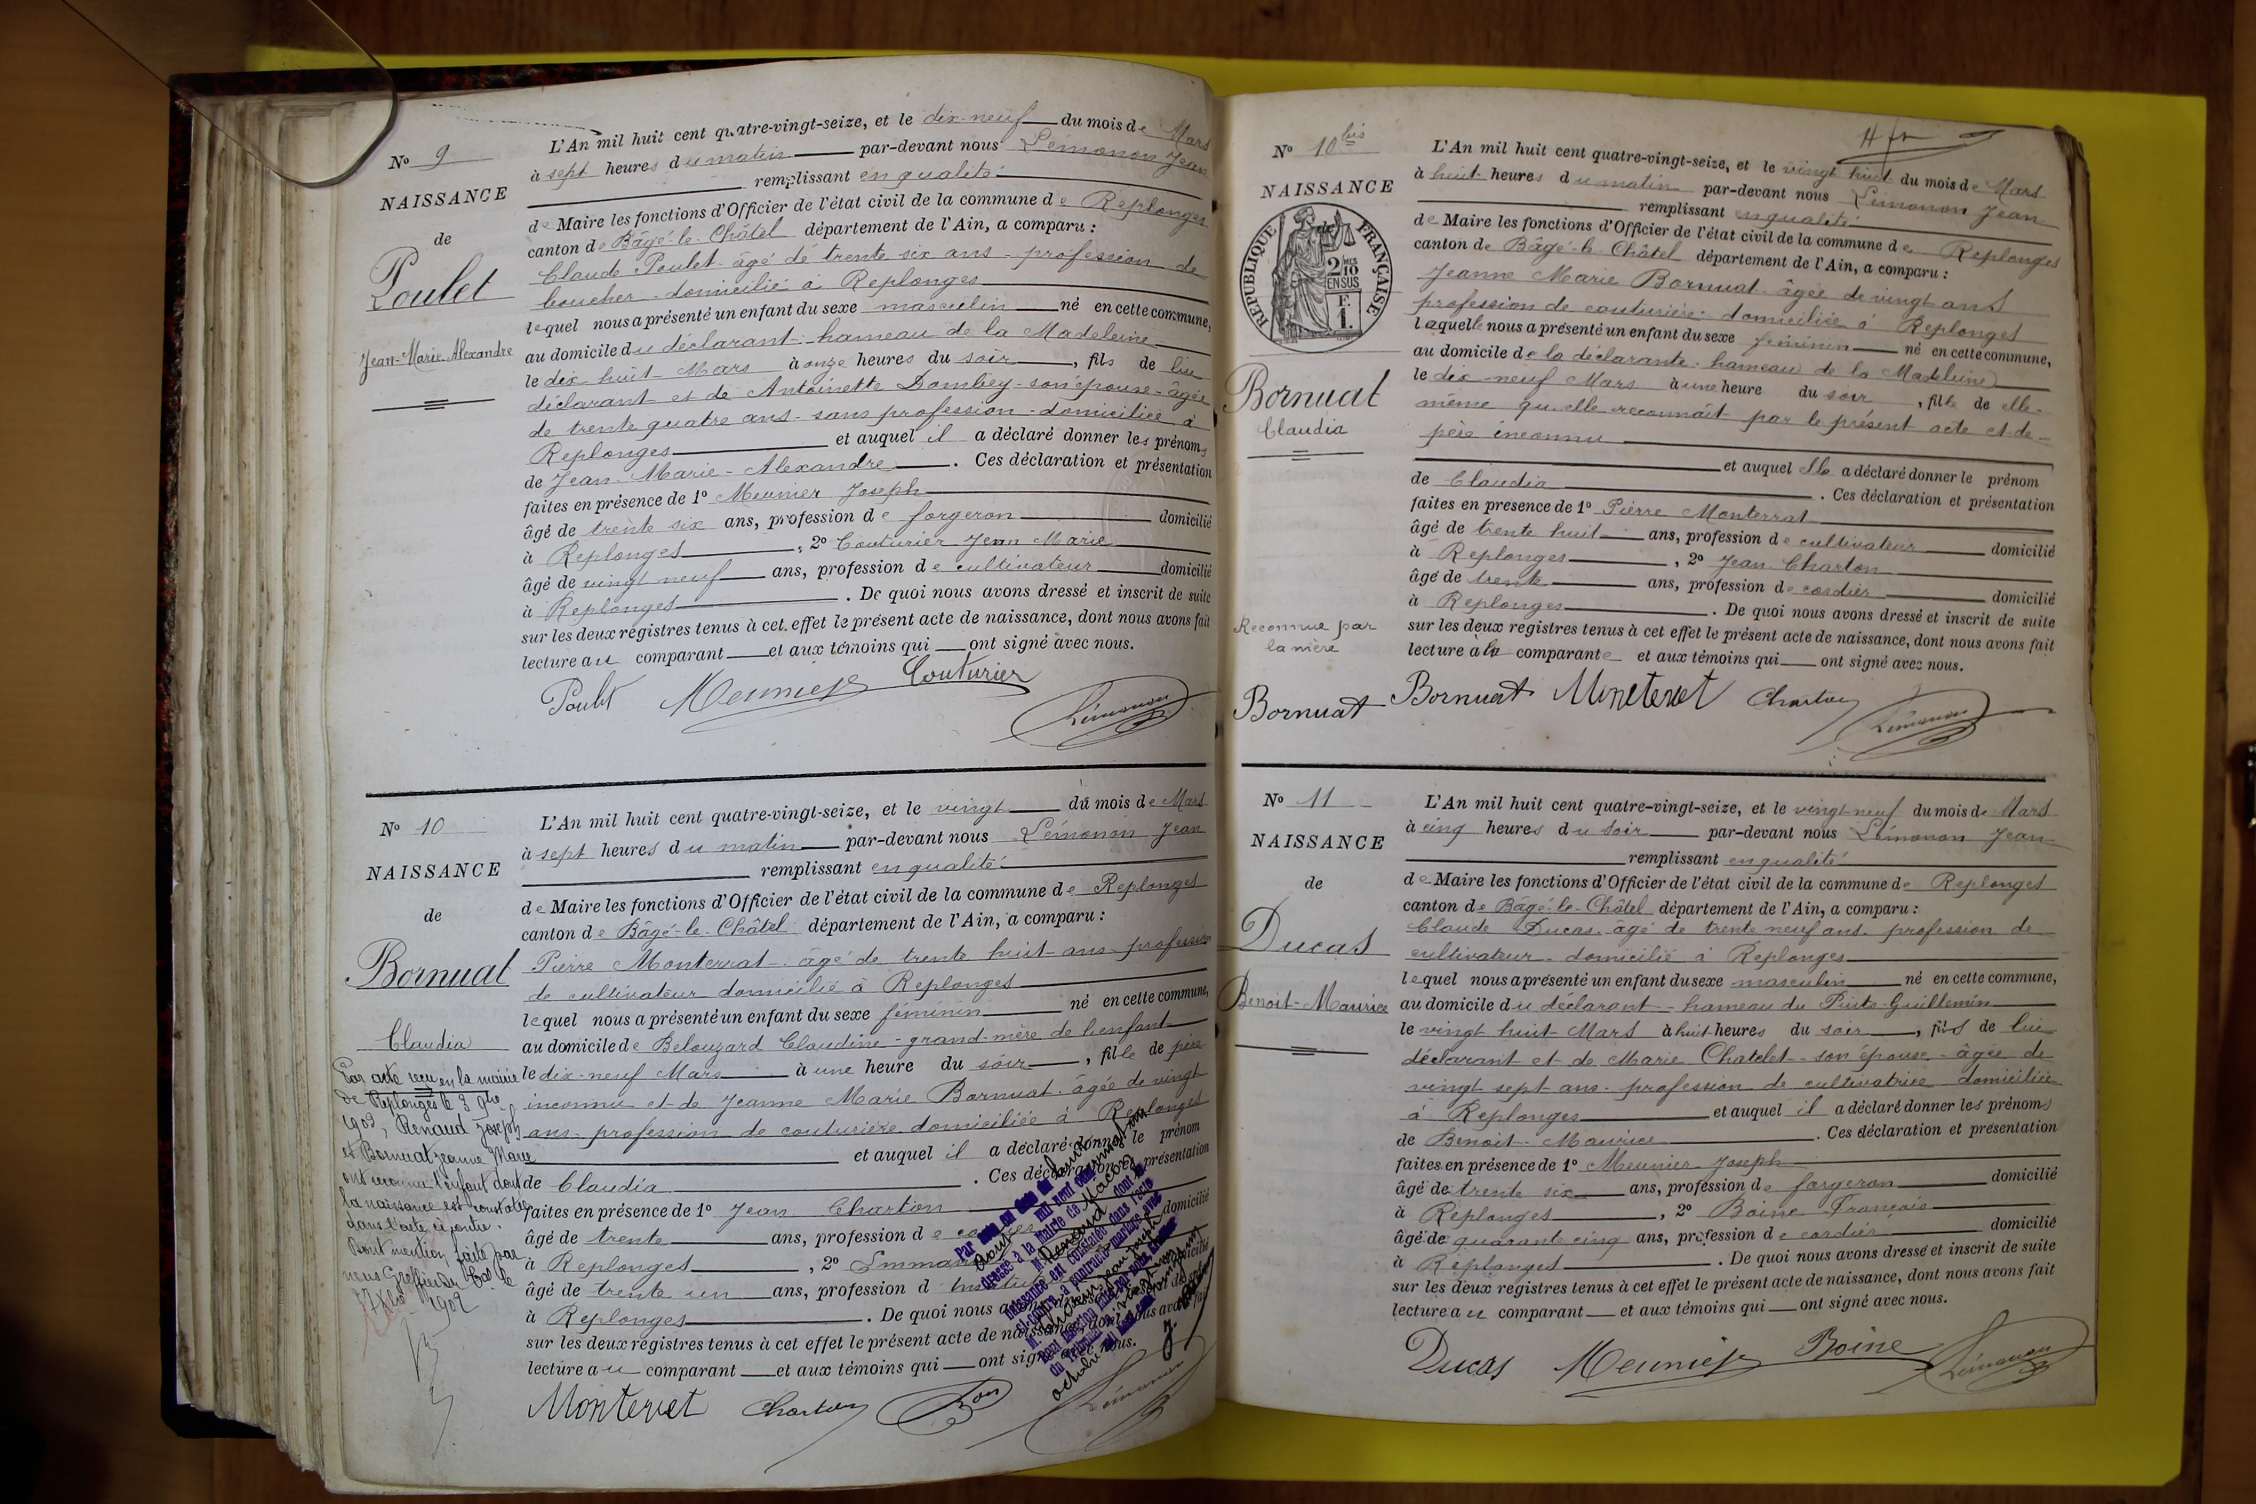 N° 9
NAISSANCE
de
Poulet
Jean-Marie-Alexandre
L'An mil huit cent quatre-vingt-seize, et le dix-neuf du mois de Mars
à sept heures du matin par-devant nous Lémonon Jean
remplissant en qualité
de Maire les fonctions d'Officier de l'état civil de la commune de Replonges
canton de Bâgé-le-Châtel département de l'Ain, a comparu :
Claude Poulet âgé de trente six ans - profession de
boucher - domicilié à Replonges
lequel nous a présenté un enfant du sexe masculin né en cette commune,
au domicile du déclarant - hameau de la Madeleine
le dix huit Mars à onze heures du soir, fils de lui
déclarant et de Antoinette Dombey - son épouse - âgée
de trente quatre ans - sans profession - domiciliée à
Replonges et auquel il a déclaré donner les prénoms
de Jean-Marie-Alexandre. Ces déclaration et présentation
faites en présence de 1° Meunier Joseph
âgé de trente six ans, profession de forgeron domicilié
à Replonges, 2° Couturier Jean Marie
âgé de vingt neuf ans, profession de cultivateur domicilié
à Replonges. De quoi nous avons dressé et inscrit de suite
sur les deux registres tenus à cet effet le présent acte de naissance, dont nous avons fait
lecture au comparant et aux témoins qui ont signé avec nous.
Poulet Meunier Couturier Lémonon
N° 10
NAISSANCE
de
Bornuat
Claudia
Par acte reçu en la mairie
de Replonges le 3 9bre
1902, Renaud Joseph
et Bornuat Jeanne Marie
ont reconnu l'enfant dont
la naissance est constatée
dans l'acte ci-contre.
Dont mention faite par
nous Greffier du
1902
L'An mil huit cent quatre-vingt-seize, et le vingt du mois de Mars
à sept heures du matin par-devant nous Lémonon Jean
remplissant en qualité
de Maire les fonctions d'Officier de l'état civil de la commune de Replonges
canton de Bâgé-le-Châtel département de l'Ain, a comparu :
Pierre Monterrat - âgé de trente huit ans - profession
de cultivateur domicilié à Replonges
lequel nous a présenté un enfant du sexe féminin né en cette commune,
au domicile de Belouzard Claudine - grand-mère de l'enfant
le dix-neuf Mars à une heure du soir, fille de père
inconnu et de Jeanne Marie Bornuat - âgée de vingt
ans - profession de couturière domiciliée à Replonges
et auquel il a déclaré donner le prénom
de Claudia. Ces déclaration et présentation
faites en présence de 1° Jean Charton
âgé de trente ans, profession de cordier domicilié
à Replonges, 2°
âgé de trente un ans, profession d domicilié
à Replonges. De quoi nous avons dressé et inscrit de suite
sur les deux registres tenus à cet effet le présent acte de naissance, dont nous avons fait
lecture au comparant et aux témoins qui ont signé avec nous.
Monterret Charton Lémonon
N° 10 bis
NAISSANCE
RÉPUBLIQUE FRANÇAISE
2 DCMES 10 EN SUS
F.
1.
Bornuat
Claudia
Reconnue par
la mère
Bornuat
L'An mil huit cent quatre-vingt-seize, et le vingt huit du mois de Mars
à huit heures du matin par-devant nous Lémonon Jean
remplissant en qualité
de Maire les fonctions d'Officier de l'état civil de la commune de Replonges
canton de Bâgé-le-Châtel département de l'Ain, a comparu :
Jeanne Marie Bornuat - âgée de vingt ans
profession de couturière - domiciliée à Replonges
laquelle nous a présenté un enfant du sexe féminin né en cette commune,
au domicile de la déclarante - hameau de la Madeleine
le dix-neuf Mars à une heure du soir, fille de elle-
même qu'elle reconnaît par le présent acte et de
père inconnu
et auquel elle a déclaré donner le prénom
de Claudia. Ces déclaration et présentation
faites en présence de 1° Pierre Monterrat
âgé de trente huit ans, profession de cultivateur domicilié
à Replonges, 2° Jean Charton
âgé de trente ans, profession de cordier domicilié
à Replonges. De quoi nous avons dressé et inscrit de suite
sur les deux registres tenus à cet effet le présent acte de naissance, dont nous avons fait
lecture à la comparante et aux témoins qui ont signé avec nous.
Bornuat Charton Lémonon
N° 11
NAISSANCE
de
Ducas
Benoit-Maurice
L'An mil huit cent quatre-vingt-seize, et le vingt-neuf du mois de Mars
à cinq heures du soir par-devant nous Lémonon Jean
remplissant en qualité
de Maire les fonctions d'Officier de l'état civil de la commune de Replonges
canton de Bâgé-le-Châtel département de l'Ain, a comparu :
Claude Ducas - âgé de trente neuf ans - profession de
cultivateur - domicilié à Replonges
lequel nous a présenté un enfant du sexe masculin né en cette commune,
au domicile du déclarant - hameau du Puits-Guillemin
le vingt huit Mars à huit heures du soir, fils de lui
déclarant et de Marie Chatelet - son épouse - âgée de
vingt sept ans - profession de cultivatrice domiciliée
à Replonges et auquel il a déclaré donner les prénoms
de Benoit-Maurice. Ces déclaration et présentation
faites en présence de 1° Meunier Joseph
âgé de trente six ans, profession de forgeron domicilié
à Replonges, 2° Boine François
âgé de quarante cinq ans, profession de cordier domicilié
à Replonges. De quoi nous avons dressé et inscrit de suite
sur les deux registres tenus à cet effet le présent acte de naissance, dont nous avons fait
lecture au comparant et aux témoins qui ont signé avec nous.
Ducas Meunier Boine Lémonon